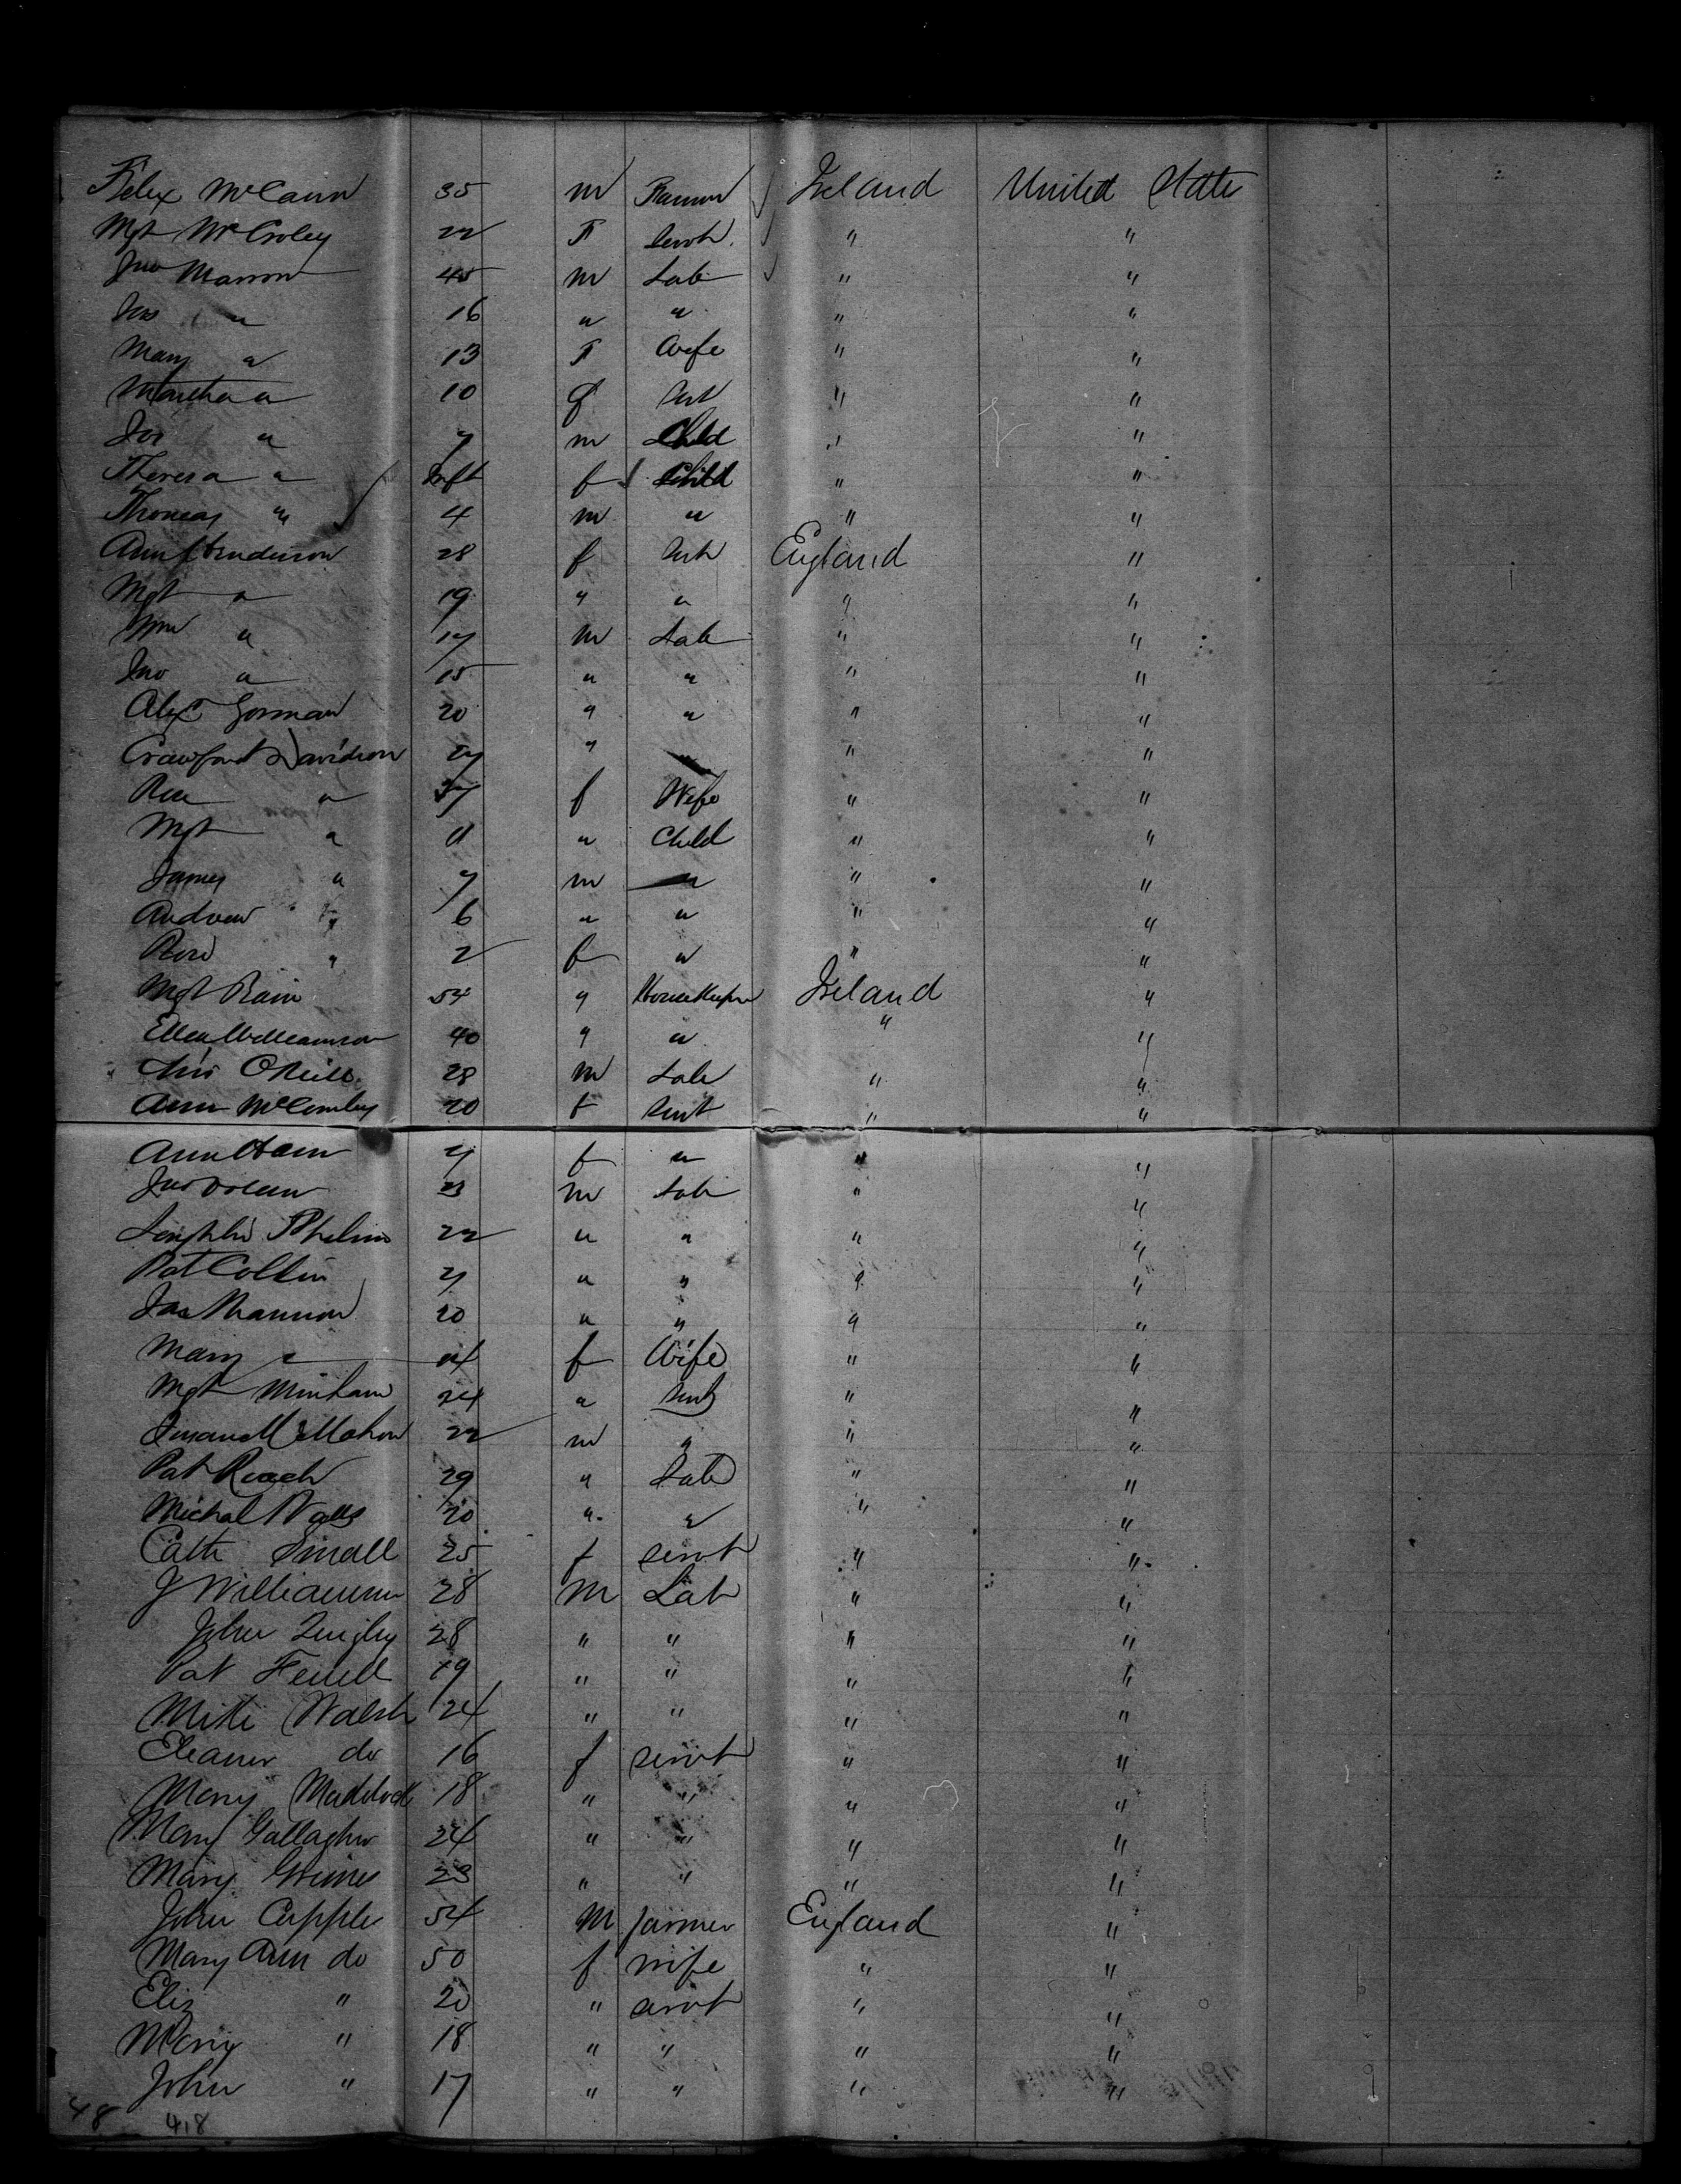 Felix McCann 35 m Ireland United States
Mgt McCroley 22 F Servt. " "
Jno Marron 45 m Lab " "
Jno " 16 " " " "
Mary " 13 F Wife " "
Martha " 10 f Sert " "
Jos " 7 m Child " "
Theresa " Inft f Child " "
Thomas " 4 m " " "
Ann Henderson 28 f Sert England "
Mgt " 19 " " " "
Wm " 17 m Lab " "
Jno " 15 " " " "
Alex Gorman 20 " " " "
Crawford Davidson " " "
" f Wife " "
Mgt " 11 " Child " "
James " 7 m " " "
Andrew " 6 " " " "
Rose " 2 f " " "
Mgt 54 " Housekeeper Ireland "
Ellen Williamson 40 " " " "
O'Neill 28 m Lab " "
Ann 20 f Servt " "
Ann f " " "
Jno Dolan 23 m Lab " "
Phelim 22 " " " "
Pat " " " "
Jas 20 " " " "
Mary " f Wife " "
Mgt 24 " Servt " "
McMahon 22 m " " "
Pat Roach 29 " Lab " "
Michal Walls 20 " " " "
Cath Small 25 f servt " "
J Williamson 28 m Lab " "
John Quigley 28 " " " "
Pat 19 " " " "
Walsh 24 " " " "
Eleanor do 16 f servt " "
Mary Maddock 18 " " " "
Mary Gallagher 24 " " " "
Mary Grimes 23 " " " "
John Cupples 54 M farmer England "
Mary Ann do 50 f wife " "
Eliz " 20 " servt " "
Mary " 18 " " " "
John " 17 " " " "
48 418